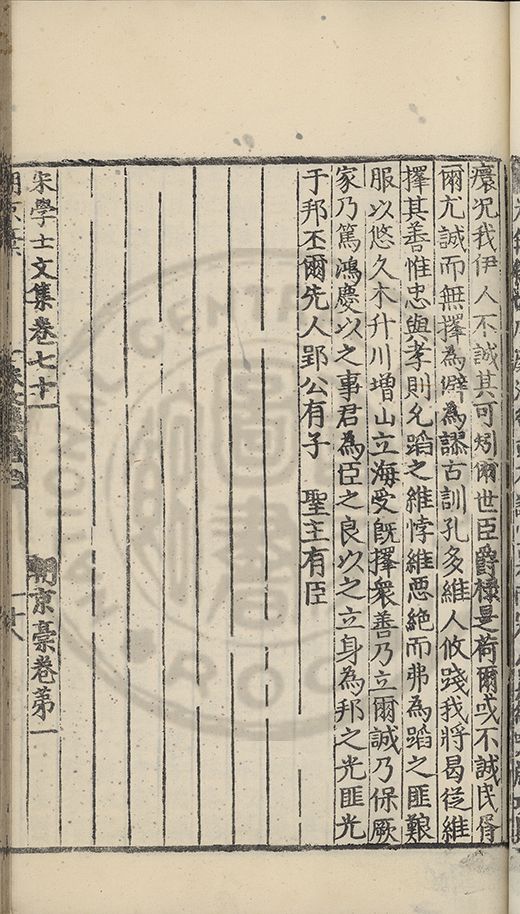 瓌况我伊人不誠其可矧爾世臣爵祿是荷爾或不誠民胥
爾尤誠而無擇為僻為謬古訓孔多維人攸踐我將曷從維
擇其善惟忠與孝則允蹈之維悖維惡絕而弗為蹈之匪艱
服以悠久木升川增山立海受旣擇衆善乃立爾誠乃保厥
家乃篤鴻慶以之事君為臣之良以之立身為邦之光匪光
于邦丕爾先人郢公有子 聖主有臣
宋學士文集卷七十一 朝京稾卷第一